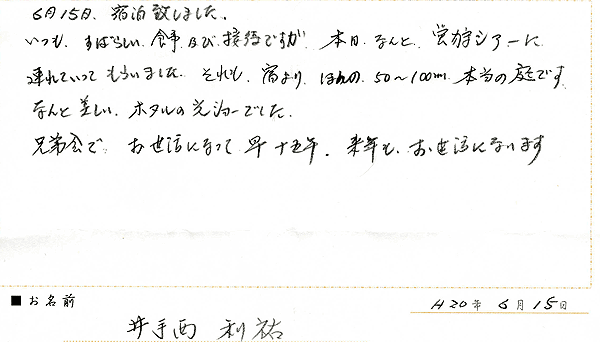 6月15日、宿泊致しました。
いつも、すばらしい、食事、及び、接待ですが、本日、なんと、蛍狩ツアーに
連れていって もらいました。それも、宿より、ほんの、50〜100m、本当の庭です。
なんと美しい、ホタルの光の一でした。
兄弟会で、お世話になって 早 十五年、来年も、お世話になります
■お名前
H20年 6月15日
井手西 利祐